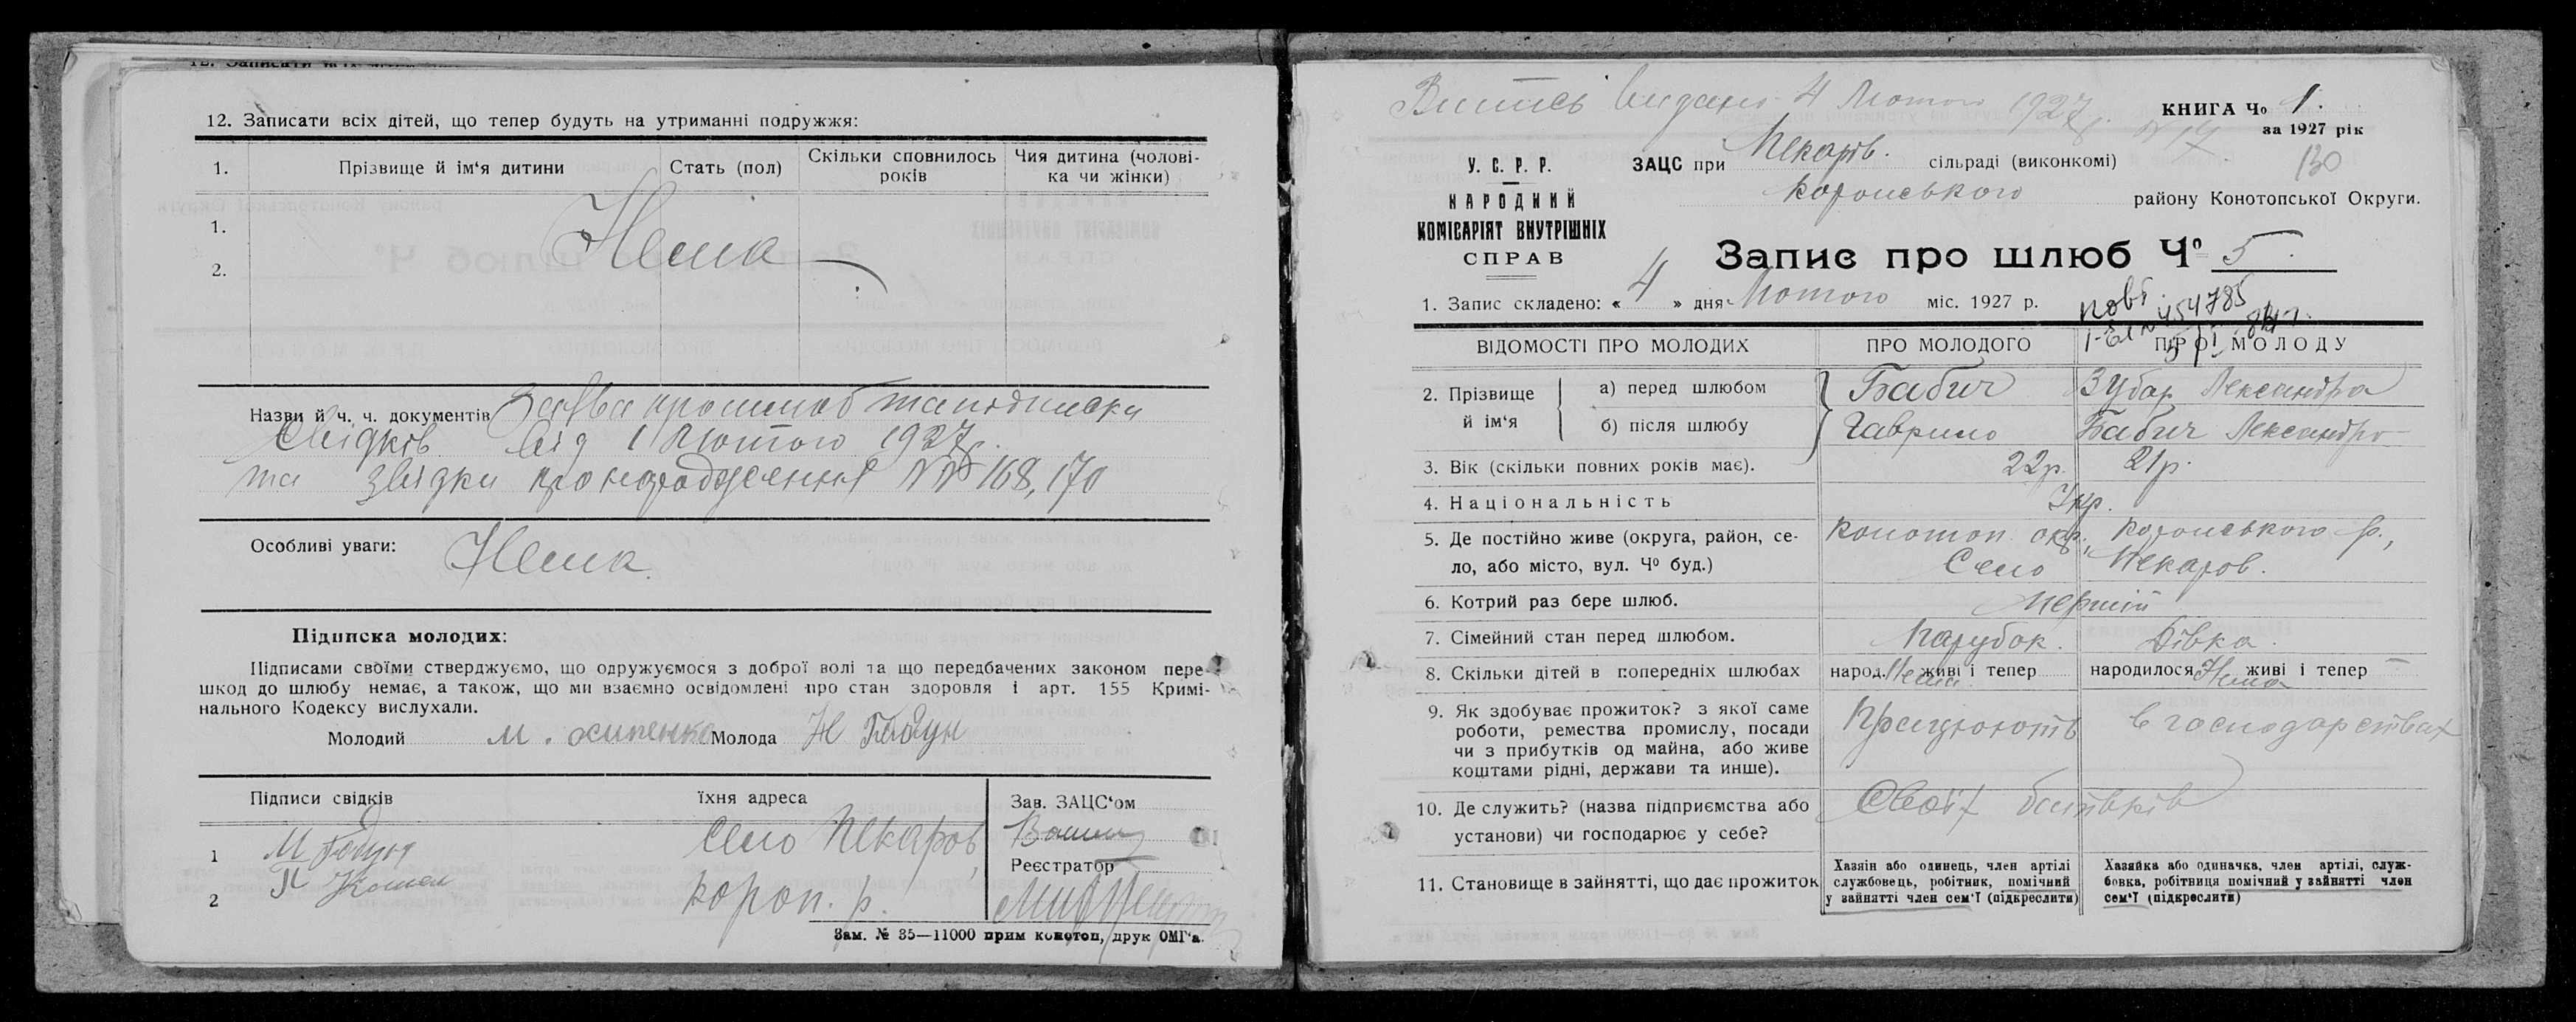 12. Записати всіх дітей, що тепер будуть на утриманні подружжя:
1. Прізвище й ім‘я дитини Стать (пол) Скільки сповнилось років Чия дитина (чоловіка чи жінки)
1.
2.
Нема
Назви й ч. ч. документів Заява про шлюб та підписки
свідків від 1 Лютого 1927 р.
та звідки про народження №№ 168, 170
Особливі уваги: Нема
Підписка молодих:
Підписами своїми стверджуємо, що одружуємося з доброї волі та що передбачених законом пере-
шкод до шлюбу немає, а також, що ми взаємно освідомлені про стан здоровля і арт. 155 Кримі-
нального Кодексу вислухали.
Молодий М. Осипенко Молода Н
Підписи свідків їхня адреса Зав. ЗАЦС‘ом
1 М село Пекаров,
Реєстратор
2 короп. р.
Зам. № 35—11000 прим конотоп, друк ОМГ‘а.
Витпсь видано 4 Лютого 1927 р.
КНИГА Чо 1.
за 1927 рік
130
У. С. Р. Р.
НАРОДНИЙ
КОМІСАРІЯТ ВНУТРІШНІХ
СПРАВ
ЗАЦС при Пекарів. сільраді (виконкомі)
коропського району Конотопської Округи.
Запис про шлюб Чо 5.
1. Запис складено: « 4 » дня Лютого міс. 1927 р.
повт.
454785
ВІДОМОСТІ ПРО МОЛОДИХ ПРО МОЛОДОГО ПРО МОЛОДУ
2. Прізвище й ім‘я
а) перед шлюбом Бабич Зубар Лександра
б) після шлюбу Гаврило Бабич Лександра
3. Вік (скільки повних років має). 22 р. 21 р.
4. Національність Укр.
5. Де постійно живе (округа, район, се- Конотоп. окр., Коропського р.,
ло, або місто, вул. Чо буд.) Село Пекаров.
6. Котрий раз бере шлюб. Перший
7. Сімейний стан перед шлюбом. Парубок. Дівка.
8. Скільки дітей в попередніх шлюбах народ. Нема живі і тепер народилося Нема живі і тепер —
9. Як здобуває прожиток? з якої саме
роботи, ремества промислу, посади
чи з прибутків од майна, або живе
коштами рідні, держави та инше).
Працюють в господарствах
10. Де служить? (назва підприємства або
установи) чи господарює у себе?
Своїх батьків
11. Становище в зайнятті, що дає прожиток
Хазяін або одинець, член артілі
службовець, робітник, помічний
у зайнятті член сем‘ї (підкреслити)
Хазяйка або одиначка, член артілі, служ-
бовка, робітниця помічний у зайнятті член
сем‘ї (підкреслити)